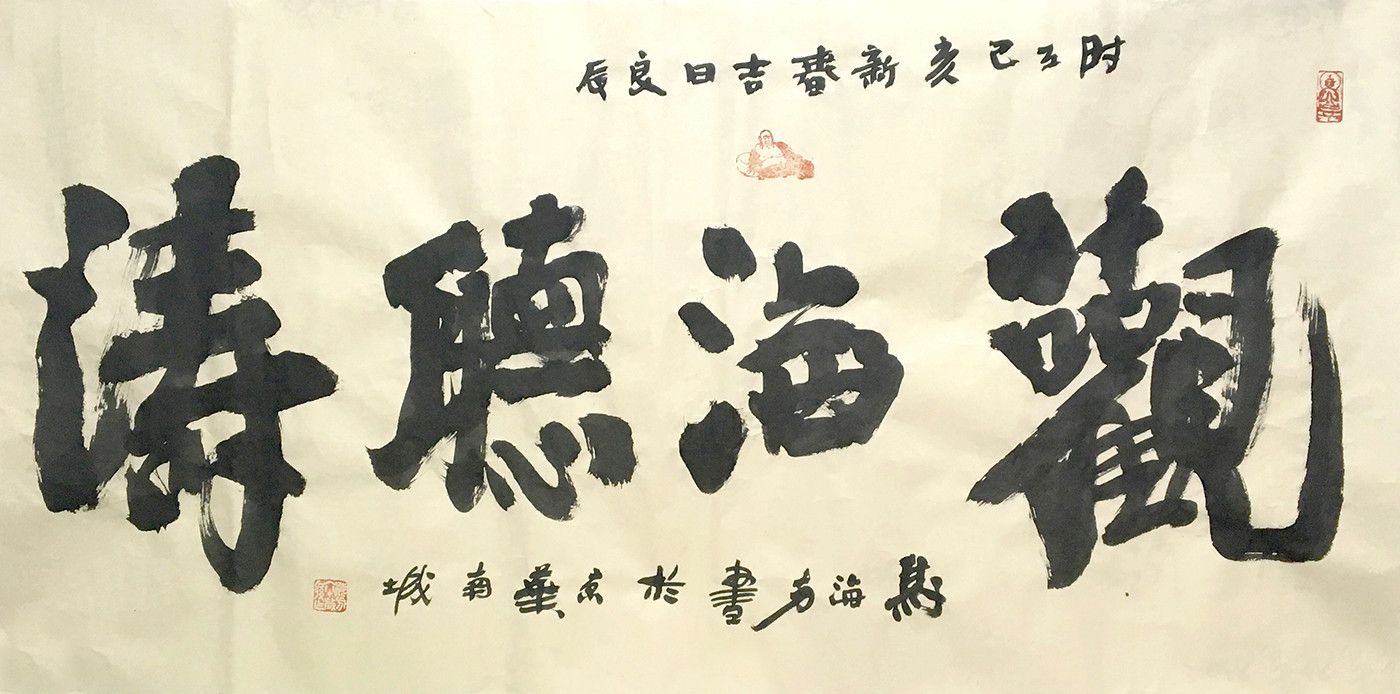 时在己亥新春吉日良辰
觀海聽濤
海書於京華南城